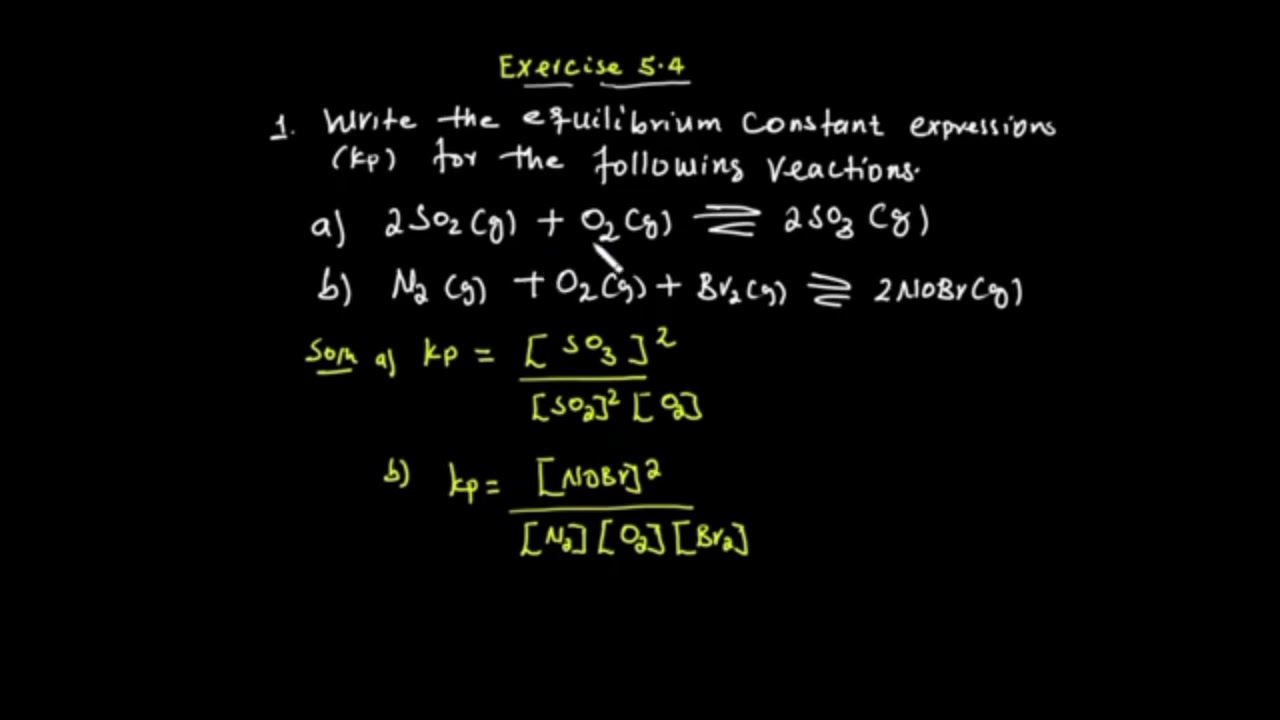 Exercise 5.4
1. Write the equilibrium constant expressions
(kp) for the following reactions.
a) 2SO₂(g) + O₂(g) ⇌ 2SO₃(g)
b) N₂(g) + O₂(g) + Br₂(g) ⇌ 2NOBr(g)
Soln a) kp = [SO₃]²
[SO₂]² [O₂]
b) kp = [NOBr]²
[N₂] [O₂] [Br₂]